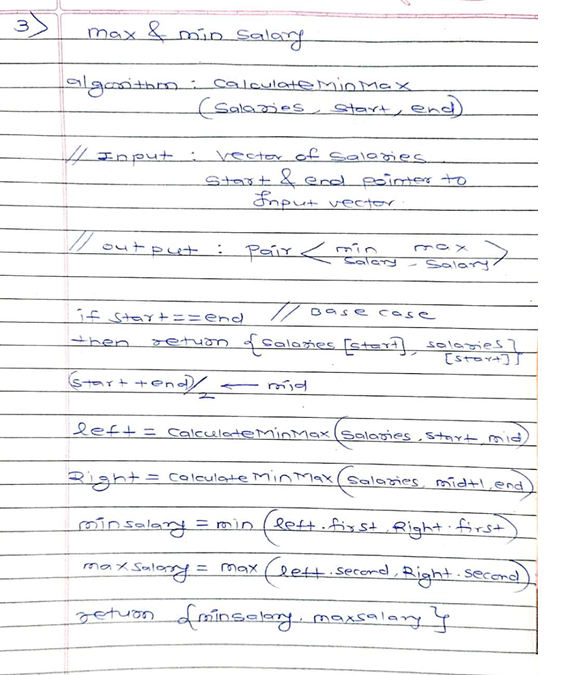 3) max & min salary
algorithm : calculateMinMax
(salaries, start, end)
// Input : vector of salaries
start & end pointer to
Input vector.
// output : Pair < min salary, max salary >
if start==end // Base case
then return {salaries [start], salaries [start]}
(start + end)/2 ← mid
left = calculateMinMax(salaries, start, mid)
Right = calculateMinMax(salaries, mid+1, end)
minsalary = min (left.first, Right.first)
maxsalary = max (left.second, Right.second)
return {minsalary, maxsalary}